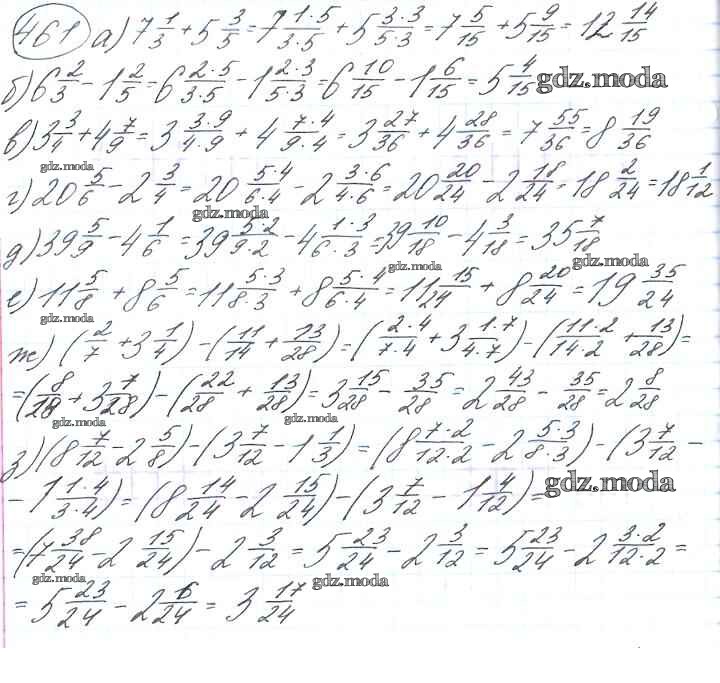 461 а) 7 1/3 + 5 3/5 = 7 1·5/3·5 + 5 3·3/5·3 = 7 5/15 + 5 9/15 = 12 14/15
б) 6 2/3 - 1 2/5 = 6 2·5/3·5 - 1 2·3/5·3 = 6 10/15 - 1 6/15 = 5 4/15 gdz.moda
в) 3 3/4 + 4 7/9 = 3 3·9/4·9 + 4 7·4/9·4 = 3 27/36 + 4 28/36 = 7 55/36 = 8 19/36
gdz.moda
г) 20 5/6 - 2 3/4 = 20 5·4/6·4 - 2 3·6/4·6 = 20 20/24 - 2 18/24 = 18 2/24 = 18 1/12
gdz.moda
д) 39 5/9 - 4 1/6 = 39 5·2/9·2 - 4 1·3/6·3 = 39 10/18 - 4 3/18 = 35 7/18
gdz.moda gdz.moda
е) 11 5/8 + 8 5/6 = 11 5·3/8·3 + 8 5·4/6·4 = 11 15/24 + 8 20/24 = 19 35/24
gdz.moda
ж) (2/7 + 3 1/4) - (11/14 + 13/28) = (2·4/7·4 + 3 1·7/4·7) - (11·2/14·2 + 13/28) =
= (8/28 + 3 7/28) - (22/28 + 13/28) = 3 15/28 - 35/28 = 2 43/28 - 35/28 = 2 8/28
gdz.moda gdz.moda
з) (8 7/12 - 2 5/8) - (3 7/12 - 1 1/3) = (8 7·2/12·2 - 2 5·3/8·3) - (3 7/12 -
- 1 1·4/3·4) = (8 14/24 - 2 15/24) - (3 7/12 - 1 4/12) = gdz.moda
= (7 38/24 - 2 15/24) - 2 3/12 = 5 23/24 - 2 3/12 = 5 23/24 - 2 3·2/12·2 =
gdz.moda gdz.moda
= 5 23/24 - 2 6/24 = 3 17/24